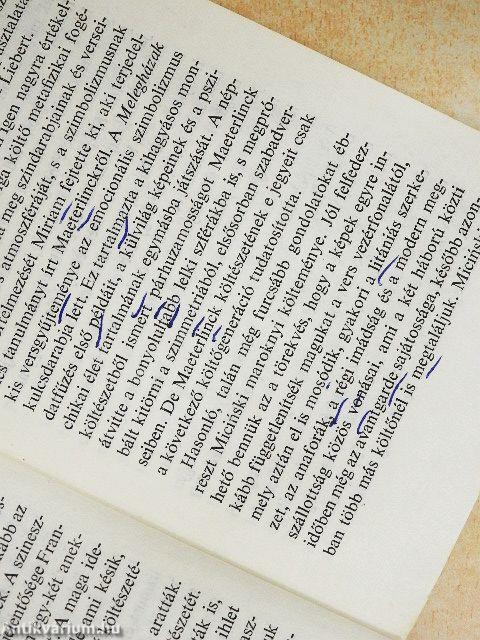 tasztalata
Liebert
igen nagyra értékel-
ga költő metafizikai fogé-
meg színdarabjainak és versei-
atmoszféráját, s a szimbolizmusnak
értelmezését Miriam fejtette ki, aki terjedel-
tanulmányt írt Maeterlinckről. A Melegházak
kis versgyűjteménye az emocionális szimbolizmus
kulcsdarabja lett. Ez tartalmazza a kihagyásos mon-
datfűzés első példáit, a külvilág képeinek és a pszi-
chikai élet tartalmának egymásba játszását. A nép-
költészetből ismert párhuzamosságot Maeterlinck
átvitte a bonyolultabb lelki szférákba is, s megpró-
bált kitörni a szimmetriából, elsősorban szabadver-
seiben. De Maeterlinck költészetének e jegyeit csak
a következő költőgeneráció tudatosította.
Hasonló, talán még furcsább gondolatokat éb-
reszt Miciński maroknyi költeménye. Jól felfedez-
hető bennük az a törekvés, hogy a képek egyre in-
kább függetlenítsék magukat a vers vezérfonalától,
mely aztán el is mosódik, gyakori a litániás szerke-
zet, az anaforák, a régi imádság és a modern meg-
szállottság közös vonásai, ami a két háború közti
időben még az avantgarde sajátossága, később azon-
ban több más költőnél is megtaláljuk. Miciński
kább az
A színesz-
Fran-
gy-két anek-
A maga ide-
ami késik,
ratták.
is,
illet
antikvarium.hu